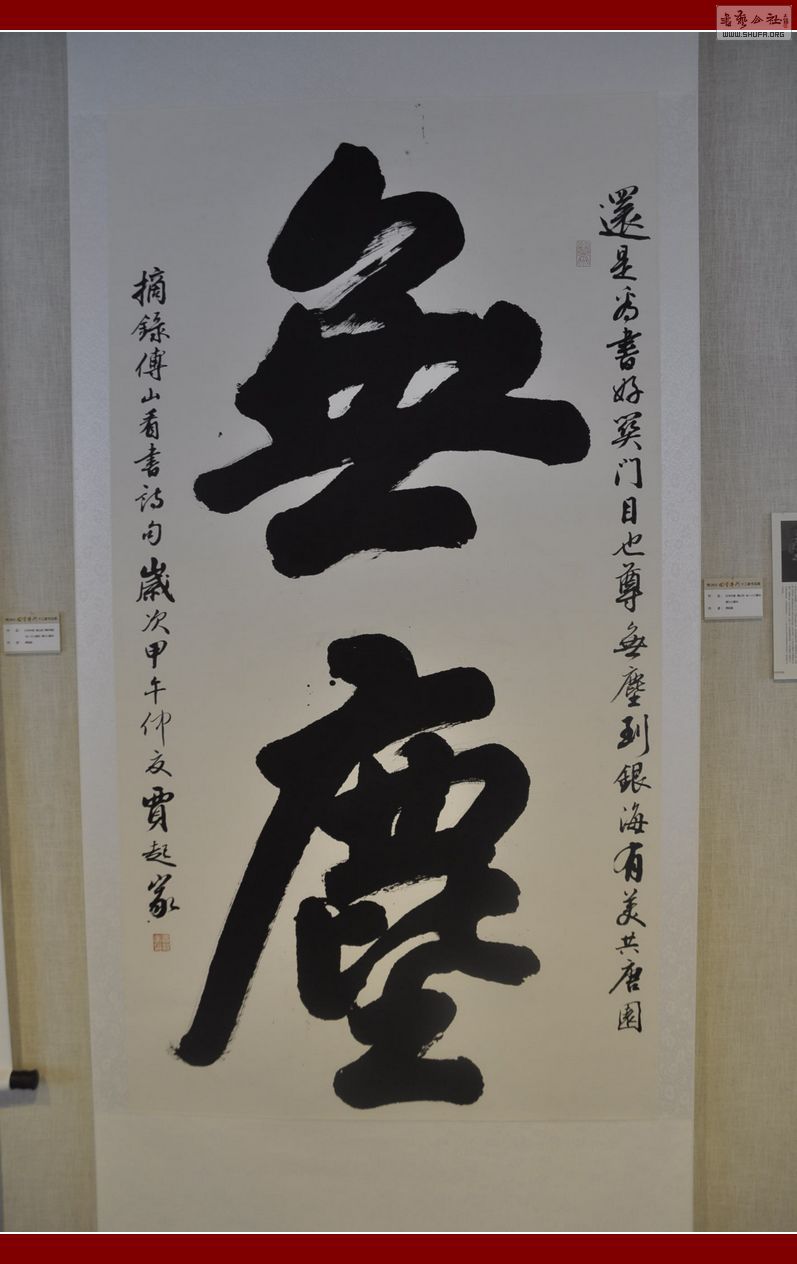 還是為書好關門目也尊無塵到銀海有美共唐園
無塵
摘錄傅山看書詩句歲次甲午仲夏賈起家
書藝公社
WWW.SHUFA.ORG